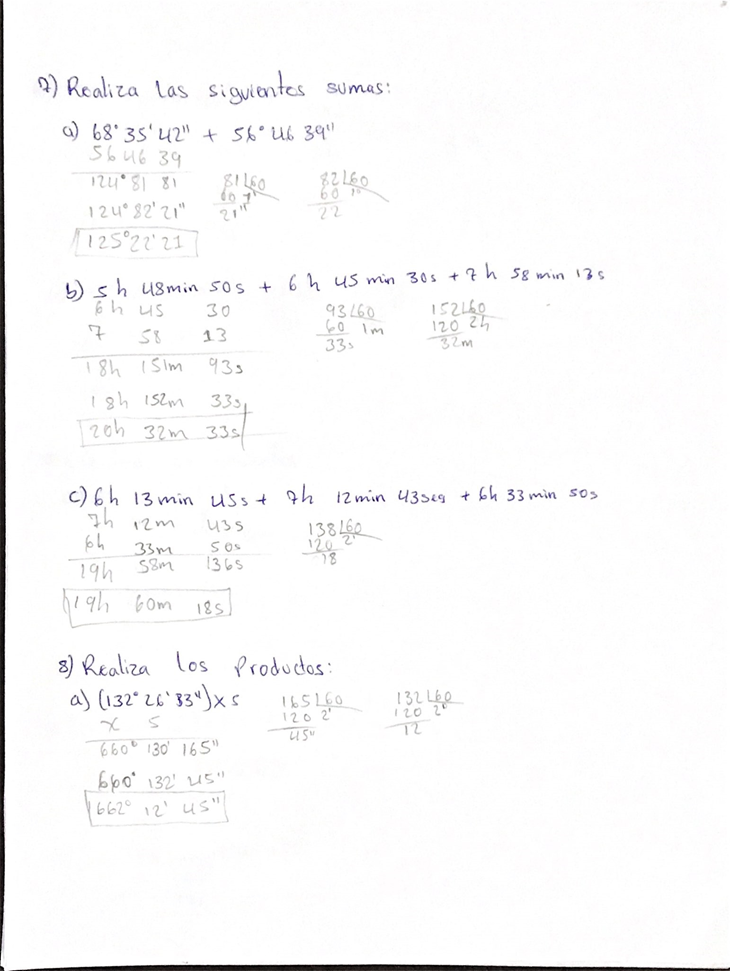 7) Realiza las siguientes sumas:
a) 68° 35' 42" + 56° 46 39"
56 46 39
124° 81 81
81 60
60 1'
21"
82 60
60 1°
22
124° 82' 21"
125° 22' 21
b) 5h 48min 50s + 6h 45 min 30s + 7h 58 min 13s
6h 45 30
7 58 13
93 60
60 1m
33s
152 60
120 2h
32m
18h 151m 93s
18h 152m 33s
20h 32m 33s
c) 6h 13min 45s + 7h 12min 43seg + 6h 33min 50s
7h 12m 43s
6h 33m 50s
138 60
120 2'
18
19h 58m 136s
19h 60m 18s
8) Realiza los Productos:
a) (132° 26' 33") x 5
x 5
165 60
120 2'
45"
132 60
120 2°
12
660° 130' 165"
660° 132' 45"
662° 12' 45"